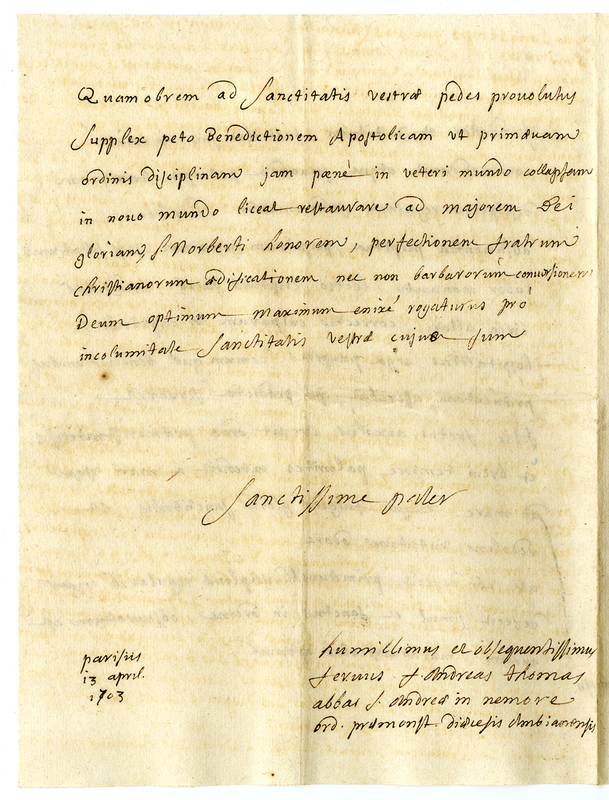 Quamobrem ad Sanctitatis vestræ pedes provolutus
supplex peto Benedictionem Apostolicam ut primævam
ordinis disciplinam jam pæné in veteri mundo collapsam
in novo mundo liceat restaurare ad majorem Dei
gloriam, S. Norberti honorem, perfectionem fratrum
christianorum ædificationem nec non barbarorum conversionem
Deum optimum maximum enixé rogaturus pro
incolumitate Sanctitatis vestræ cujus sum
Sanctissime pater
humillimus et obsequentissimus
servus f. Andreas Thomas
abbas S. Andreæ in nemore
ord. præmonst. diœcesis Ambianensis
parisiis
13 april.
1703